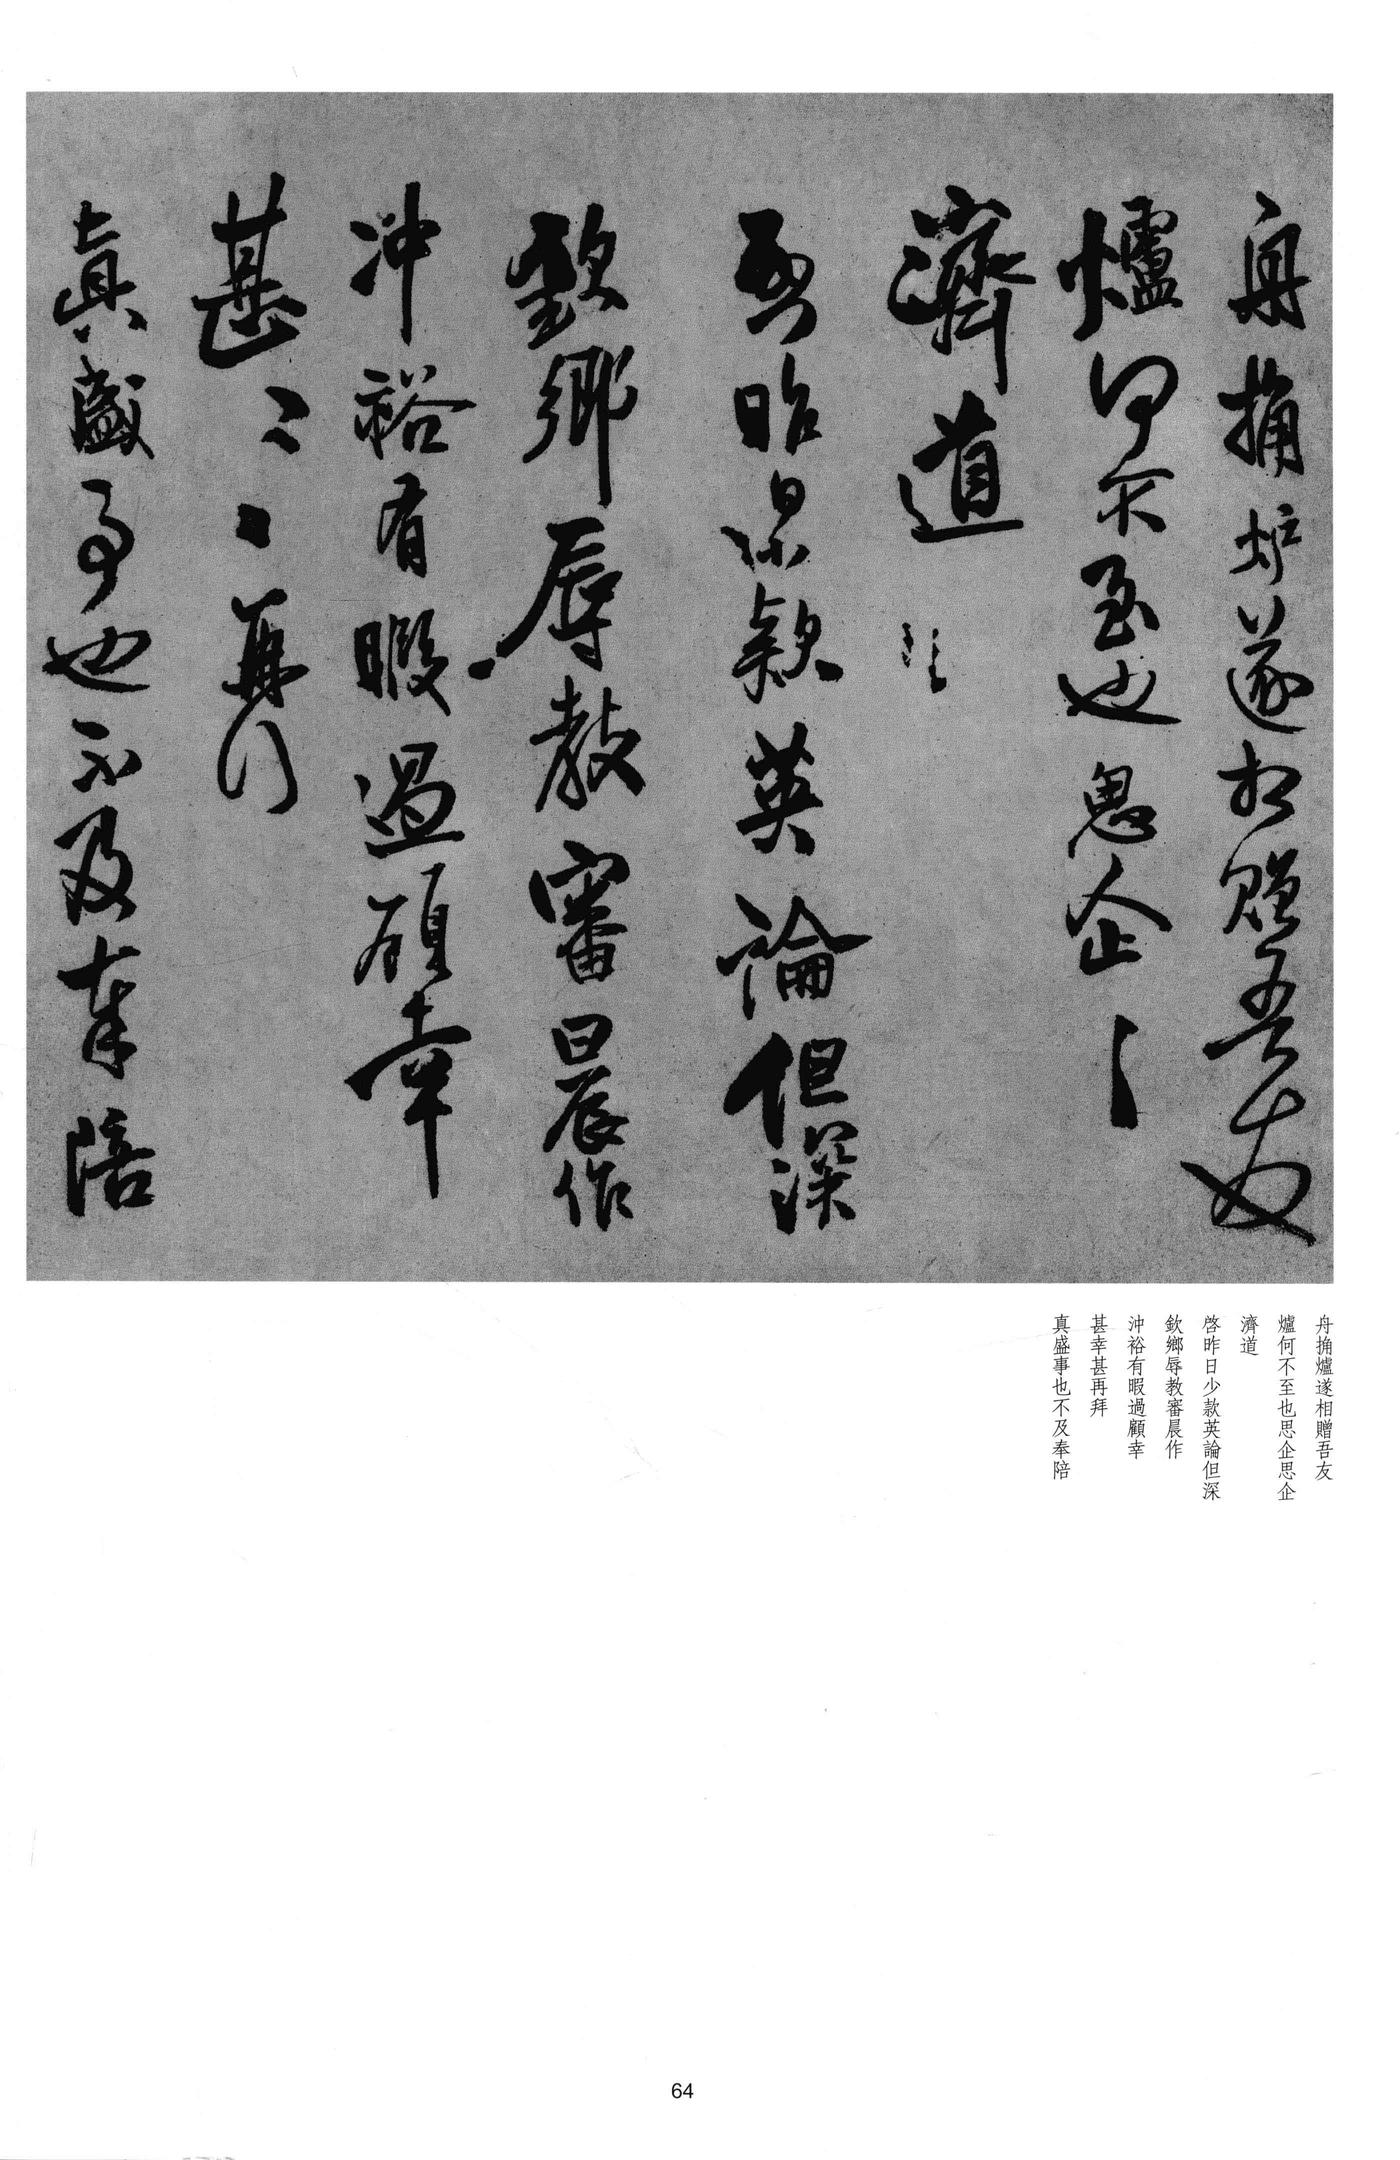 舟捅炉遂相贈吾友
爐何不至也思企〻
濟道
啓昨日少款英論但深
欽鄉辱教審日晨作
沖裕有暇過顧幸
甚〻〻再拜
真盛事也不及奉陪
舟捅爐遂相贈吾友
爐何不至也思企思企
濟道
啓昨日少款英論但深
欽鄉辱教審晨作
沖裕有暇過顧幸
甚幸甚再拜
真盛事也不及奉陪
64